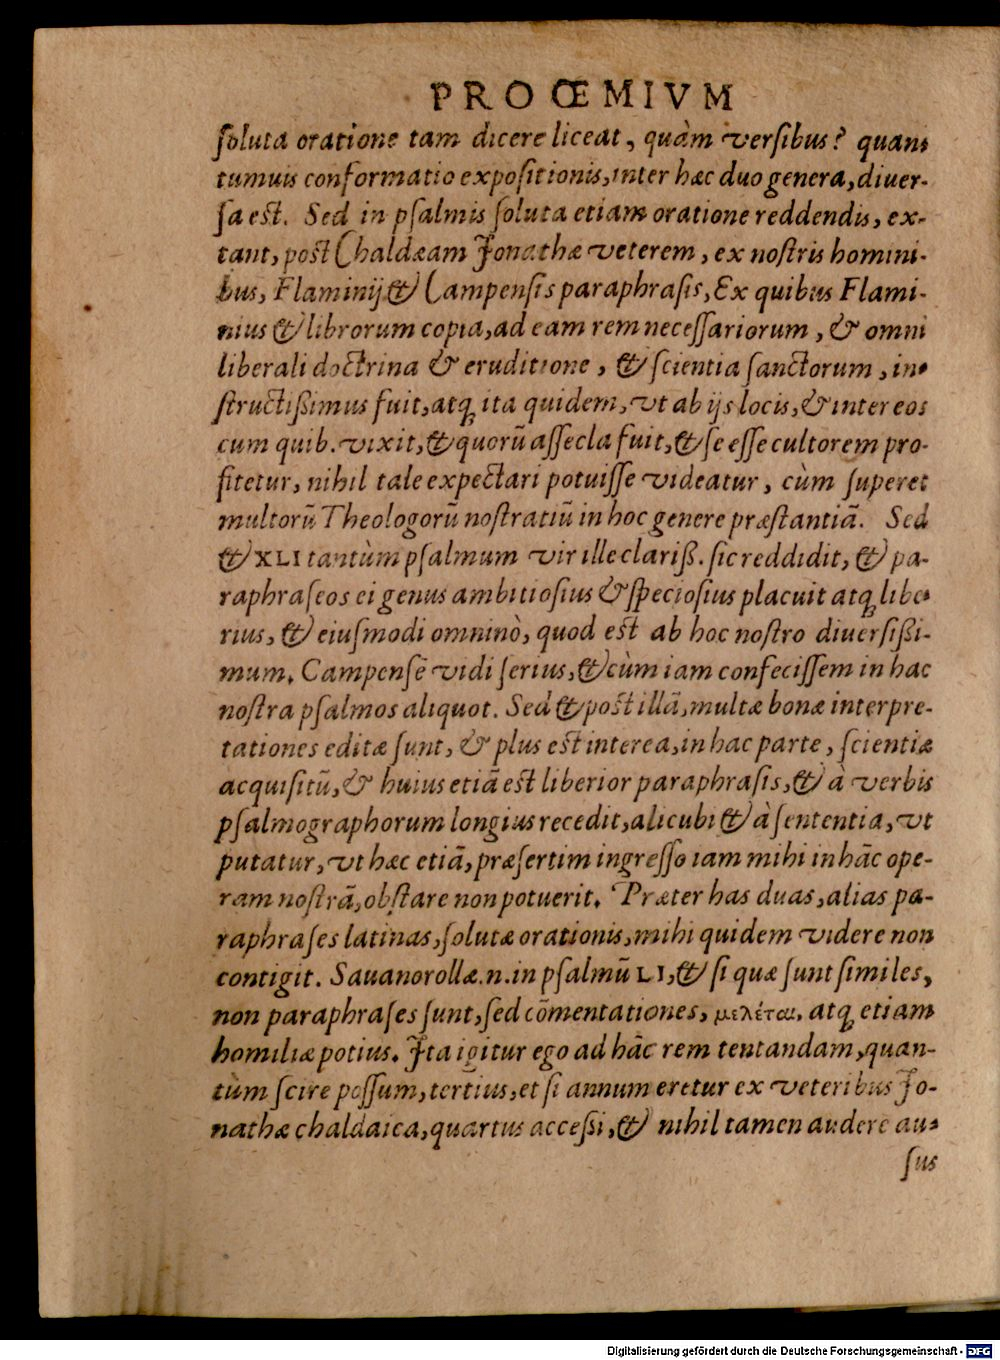 PROŒMIVM
ſoluta oratione tam dicere liceat, quàm verſibus? quan-
tumuis conformatio expoſitionis, inter hæc duo genera, diuer-
ſa eſt. Sed in pſalmis ſoluta etiam oratione reddendis, ex-
tant, poſt Chaldæam Jonathæ veterem, ex noſtris homini-
bus, Flaminij & Campenſis paraphraſis, Ex quibus Flami-
nius & librorum copia, ad eam rem neceſſariorum, & omni
liberali doctrina & eruditione, & ſcientia ſanctorum, in-
ſtructißimus fuit, atq; ita quidem, vt ab ijs locis, & inter eos
cum quib. vixit, & quorũ aſſecla fuit, & ſe eſſe cultorem pro-
fitetur, nihil tale expectari potuiſſe videatur, cùm ſuperet
multorũ Theologorũ noſtratiũ in hoc genere præſtantiã. Sed
& XLI tantùm pſalmum vir ille clariß. ſic reddidit, & pa-
raphraſeos ei genus ambitioſius & ſpecioſius placuit atq; libe-
rius, & eiuſmodi omninò, quod eſt ab hoc noſtro diuerſißi-
mum. Campenſẽ vidi ſerius, & cùm iam confeciſſem in hac
noſtra pſalmos aliquot. Sed & poſt illã, multæ bonæ interpre-
tationes editæ ſunt, & plus eſt interea, in hac parte, ſcientiæ
acquiſitũ, & huius etiã eſt liberior paraphraſis, & à verbis
pſalmographorum longius recedit, alicubi & à ſententia, vt
putatur, vt hæc etiã, præſertim ingreſſo iam mihi in hãc ope-
ram noſtrã, obſtare non potuerit. Præter has duas, alias pa-
raphraſes latinas, ſolutæ orationis, mihi quidem videre non
contigit. Sauanorollæ .n. in pſalmũ LI, & ſi quæ ſunt ſimiles,
non paraphraſes ſunt, ſed cõmentationes, μελέται, atq; etiam
homiliæ potius. Jta igitur ego ad hãc rem tentandam, quan-
tùm ſcire poſſum, tertius, et ſi annumeretur ex veteribus Jo-
nathæ chaldaica, quartus acceſſi, & nihil tamen audere au-
ſus
Digitalisierung gefördert durch die Deutsche Forschungsgemeinschaft - DFG